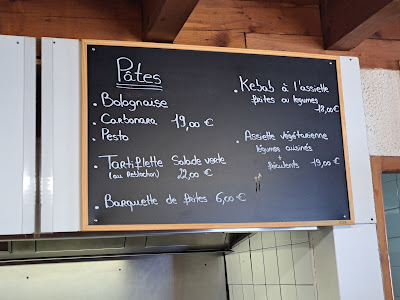 Pâtes
. Bolognaise
. Carbonara 19,00 €
. Pesto
. Tartiflette Salade verte
(ou Reblochon) 22,00 €
. Barquette de frites 6,00 €
. Kebab à l'assiette
frites ou légumes
18,00 €
. Assiette végétarienne
légumes cuisinés
+
féculents 19,00 €